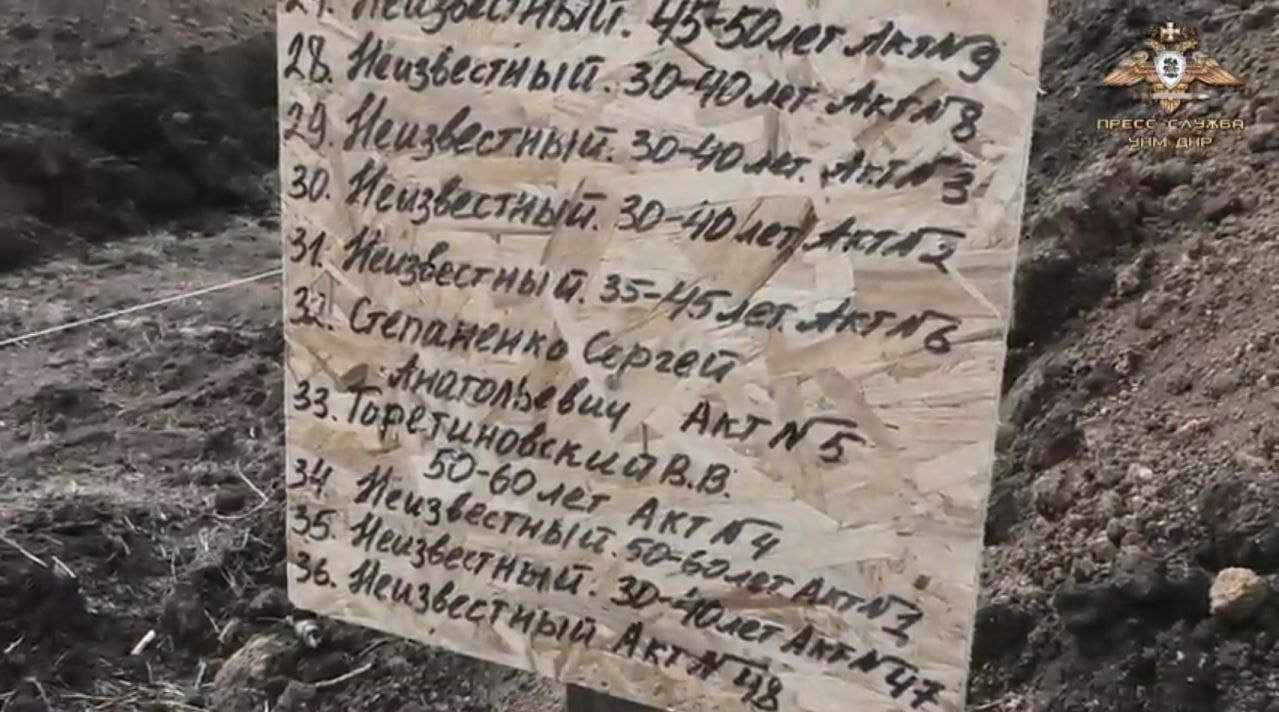 27. Неизвестный. 45-50 лет Акт N 9
28. Неизвестный. 30-40 лет. Акт N 8
29. Неизвестный. 30-40 лет. Акт N 3
30. Неизвестный. 30-40 лет. Акт N 2
31. Неизвестный. 35-45 лет. Акт N 6
32. Степаненко Сергей
Анатольевич Акт N 5
33. Торетиновский В.В.
50-60 лет Акт N 4
34 Неизвестный. 50-60 лет Акт N 1
35. Неизвестный. 30-40 лет Акт N 47
36. Неизвестный Акт N 48
ПРЕСС-СЛУЖБА
УНМ ДНР